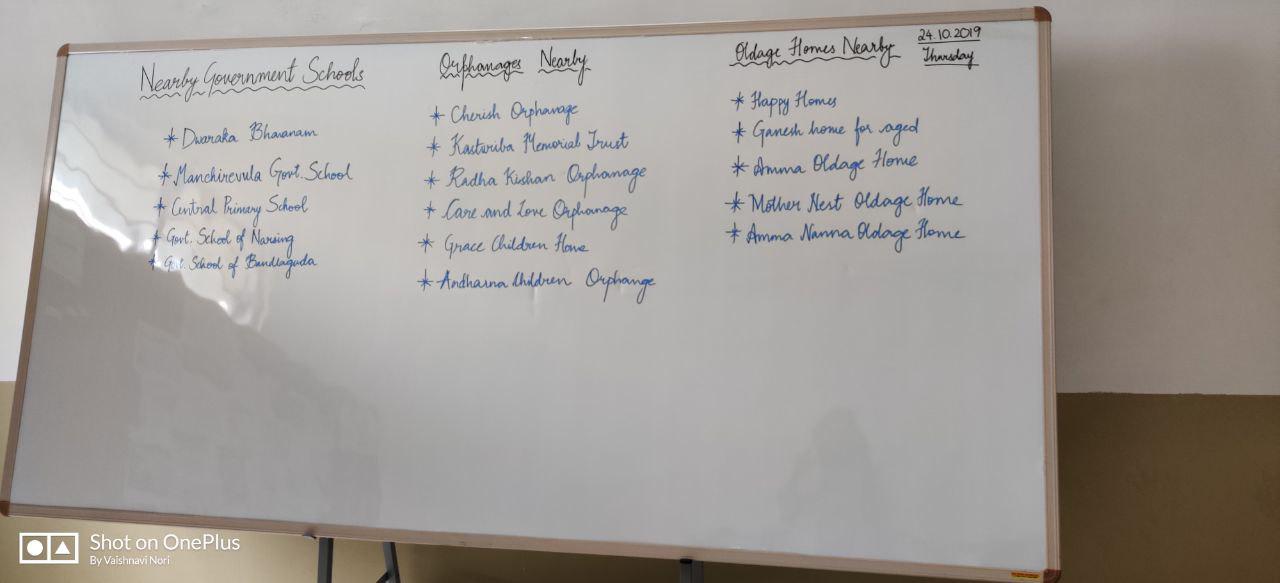 Nearby Government Schools
* Dwaraka Bhavanam
* Manchirevula Govt. School
* Central Primary School
* Govt. School of Nursing
* Govt. School of Bandlaguda
Orphanages Nearby
* Cherish Orphanage
* Kasturiba Memorial Trust
* Radha Kishan Orphanage
* Care and Love Orphanage
* Grace Children Home
* Andhasna Children Orphange
Oldage Homes Nearby
24.10.2019
Thursday
* Happy Homes
* Ganesh home for aged
* Amma Oldage Home
* Mother Nest Oldage Home
* Amma Nanna Oldage Home
Shot on OnePlus
By Vaishnavi Nori